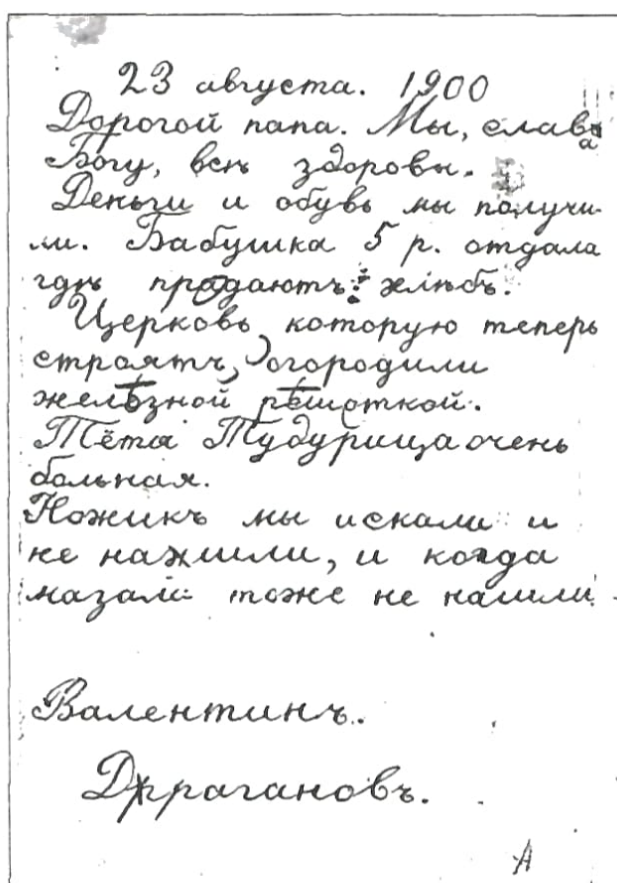 23 августа. 1900
Дорогой папа. Мы, слава
Богу, всѣ здоровы.
Деньги и обувь мы получи-
ли. Бабушка 5 р. отдала
гдѣ продаютъ хлѣбъ.
Церковь, которую теперь
строятъ, огородили
желѣзной рѣшоткой.
Тётя Тудурица очень
больная.
Ножикъ мы искали и
не нашли, и когда
мазали тоже не нашли.
Валентинъ.
Драгановъ.
А